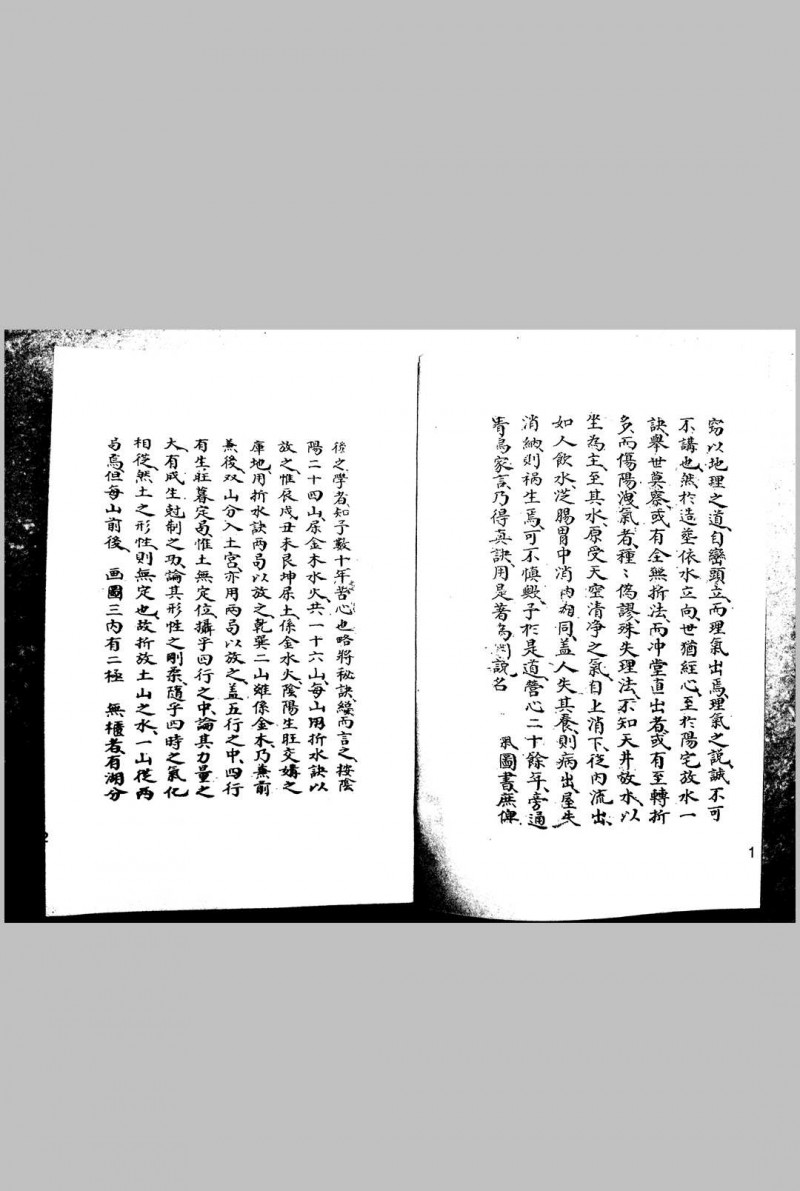 窃以地理之道、自巒頭立、而理氣出焉、理氣之説、誠不可
不講也、然於造塋依水立向、世猶經心、至於陽宅放水一
訣、舉世莫察、或有全無折法、而冲堂直出者、或有至轉折
多、而傷陽洩氣者、種〻偽謬、殊失理法、不知天井放水、以
坐為主、至其水、原受天空清净之氣、自上消下、從内流出、
如人飲水、從腸胃中消内相同、盖人失其養、則病出、屋失
消納、則禍生焉、可不慎歟、予於是道、營心二十餘年、旁通
青烏家言、乃得真訣、用是著為圖説、名 氣圖書庶俾
1
後之學者、知予數十年苦心也、略將秘訣縷而言之、按陰
陽二十四山、屬金木水火、共一十六山、每山用折水訣以
放之、惟辰戌丑未艮坤屬土、係金水火、陰陽生旺交媾之
庫地、用折水訣両局以放之、乾巽二山雖係金木、乃兼前
兼後、双山分入土宮、亦用両局以放之、盖五行之中、四行
有生旺暮定局、惟土無定位、攝乎四行之中、論其力量之
大、有成生尅制之功、論其形性之剛柔、隨乎四時之氣化
相從、無土之形性、則無定也、故折放土山之水、一山從两
局焉、但每山前後、 画圖三、内有二極 無櫃者、有湖分
2